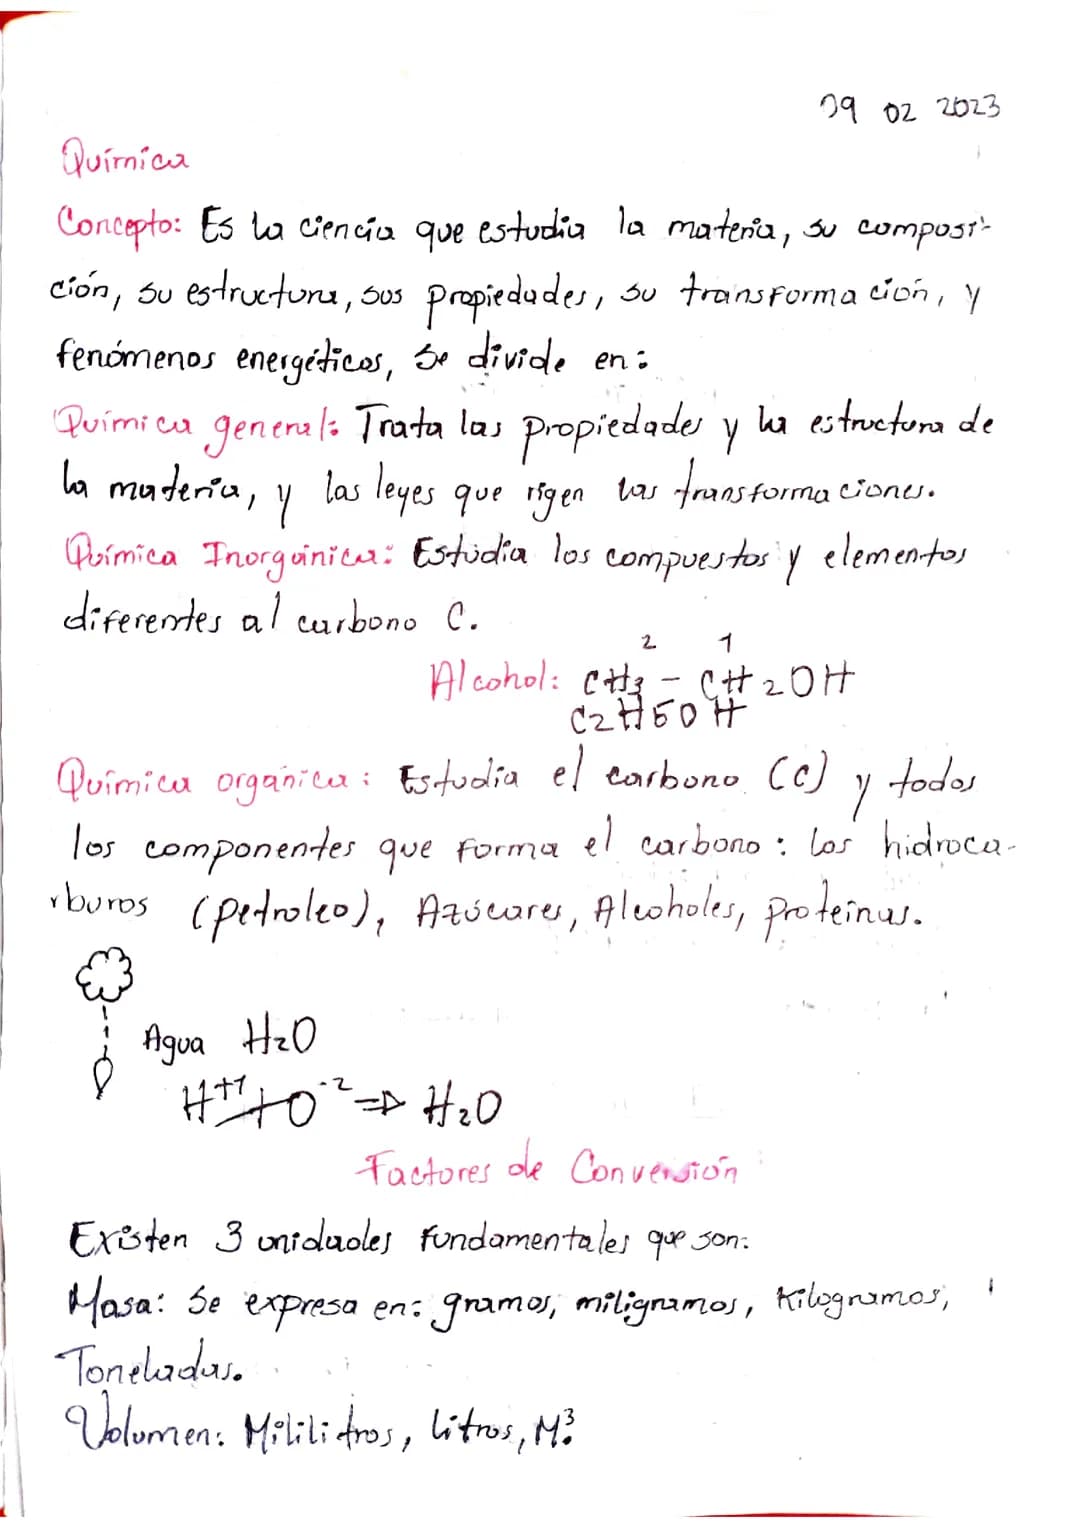 09 02 2023
Química
Concepto: Es la ciencia que estudia la materia, su composi-
ción, su estructura, sus propiedades, su transformación, y
fenómenos energéticos, se divide en:
Química general: Trata las propiedades y la estructura de
la materia, y las leyes que rigen las transformaciones.
Química Inorgánica: Estudia los compuestos y elementos
diferentes al carbono C.
2 1
Alcohol: CH3 - CH2OH
C2H5OH
Química orgánica: Estudia el carbono (C) y todos
los componentes que forma el carbono: los hidroca-
rburos (petroleo), Azúcares, Alcoholes, proteinas.
Agua H2O
H+1 + O-2 => H2O
Factores de Conversión
Existen 3 unidades fundamentales que son:
Masa: Se expresa en: gramos, miligramos, Kilogramos,
Toneladas.
Volumen: Mililitros, litros, M3.